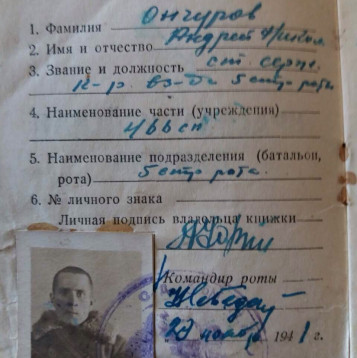 1. Фамилия Ончуров
2. Имя и отчество Андрей Никол
3. Звание и должность ст серж.
к-р. вз-да 5 стр роты
4. Наименование части (учреждения)
5. Наименование подразделения (батальон,
рота) 5 стр рота.
6. № личного знака
Личная подпись владельца книжки
Командир роты
ноября 1941 г.